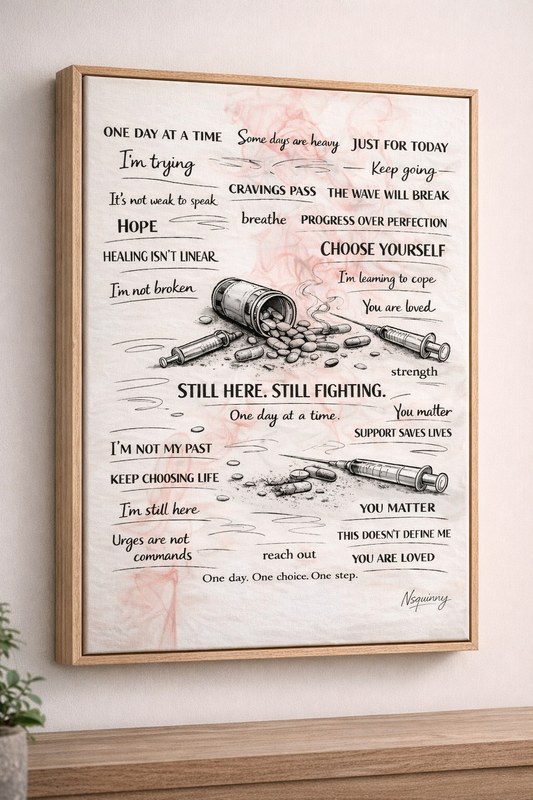 ONE DAY AT A TIME
Some days are heavy
JUST FOR TODAY
I'm trying
Keep going
It's not weak to speak
CRAVINGS PASS
THE WAVE WILL BREAK
HOPE
breathe
PROGRESS OVER PERFECTION
HEALING ISN'T LINEAR
CHOOSE YOURSELF
I'm not broken
I'm learning to cope
You are loved
strength
STILL HERE. STILL FIGHTING.
One day at a time.
You matter
SUPPORT SAVES LIVES
I'M NOT MY PAST
KEEP CHOOSING LIFE
I'm still here
YOU MATTER
Urges are not
commands
THIS DOESN'T DEFINE ME
reach out
YOU ARE LOVED
One day. One choice. One step.
Nsquinny